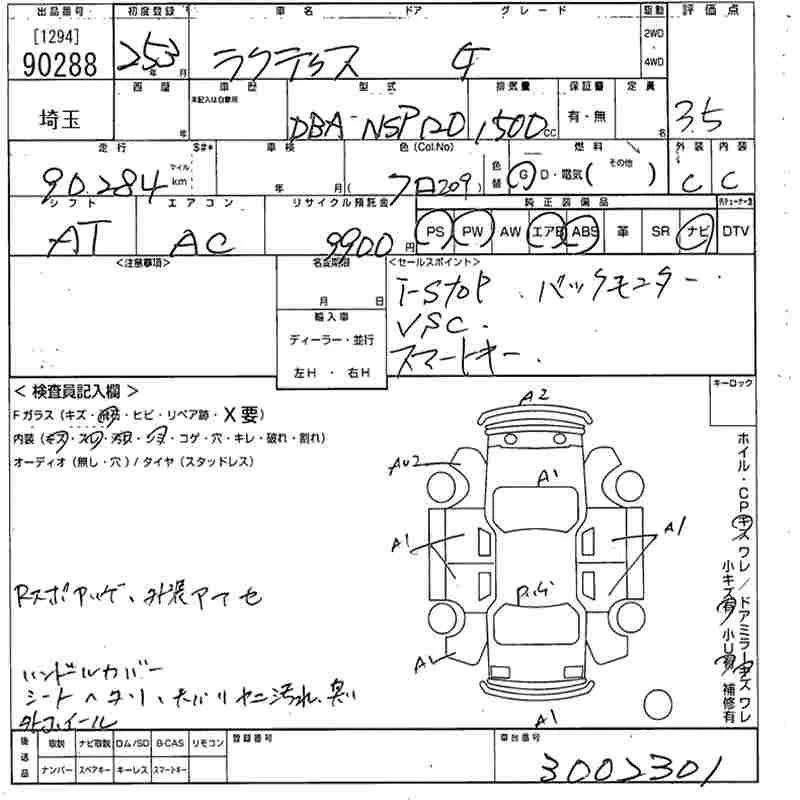 出品番号 初度登録 車名 ドア グレード 駆動 評価点
[1294]
90288
25 3 年 月
ラクティス G
2WD
・
4WD
3.5
西暦 車歴 型式 排気量 保証書 定員
埼玉
年
本記入は自家用
DBA-NSP120 1500 CC
有・無 名
走行 S#* 車検 色(Col.No) 色替 燃料 外装 内装
90,284 マイル km
年 月
(クロ209)
G D・電気( その他 )
C C
シフト エアコン リサイクル預託金 純正装備品
AT AC 9900 円
PS PW AW エアB ABS 革 SR ナビ DTV
<注意事項>
名変期限
月 日
輸入車
ディーラー・並行
左H ・ 右H
<セールスポイント>
I-STOP 、バックモニター.
VSC .
スマートキー .
<検査員記入欄>
キーロック
Fガラス(キズ・飛石・ヒビ・リペア跡・X要)
内装(キズ・スレ・汚れ・シミ・コゲ・穴・キレ・破れ・割れ)
オーディオ(無し・穴)/タイヤ(スタッドレス)
A2
AU2
A1
A1
A1
A1
ホイル・CPキズワレ/ドアミラーキズワレ
小キズ有 小U有 補修有
外装アセ
ハンドルカバー
シートヘタリ、タバコヤニ汚れ、臭い
社外ホイール
後送品
取説 ナビ取説 ロム/SD B-CAS リモコン
ナンバー スペアキー キーレス スマートキー
登録番号
車台番号
3002301